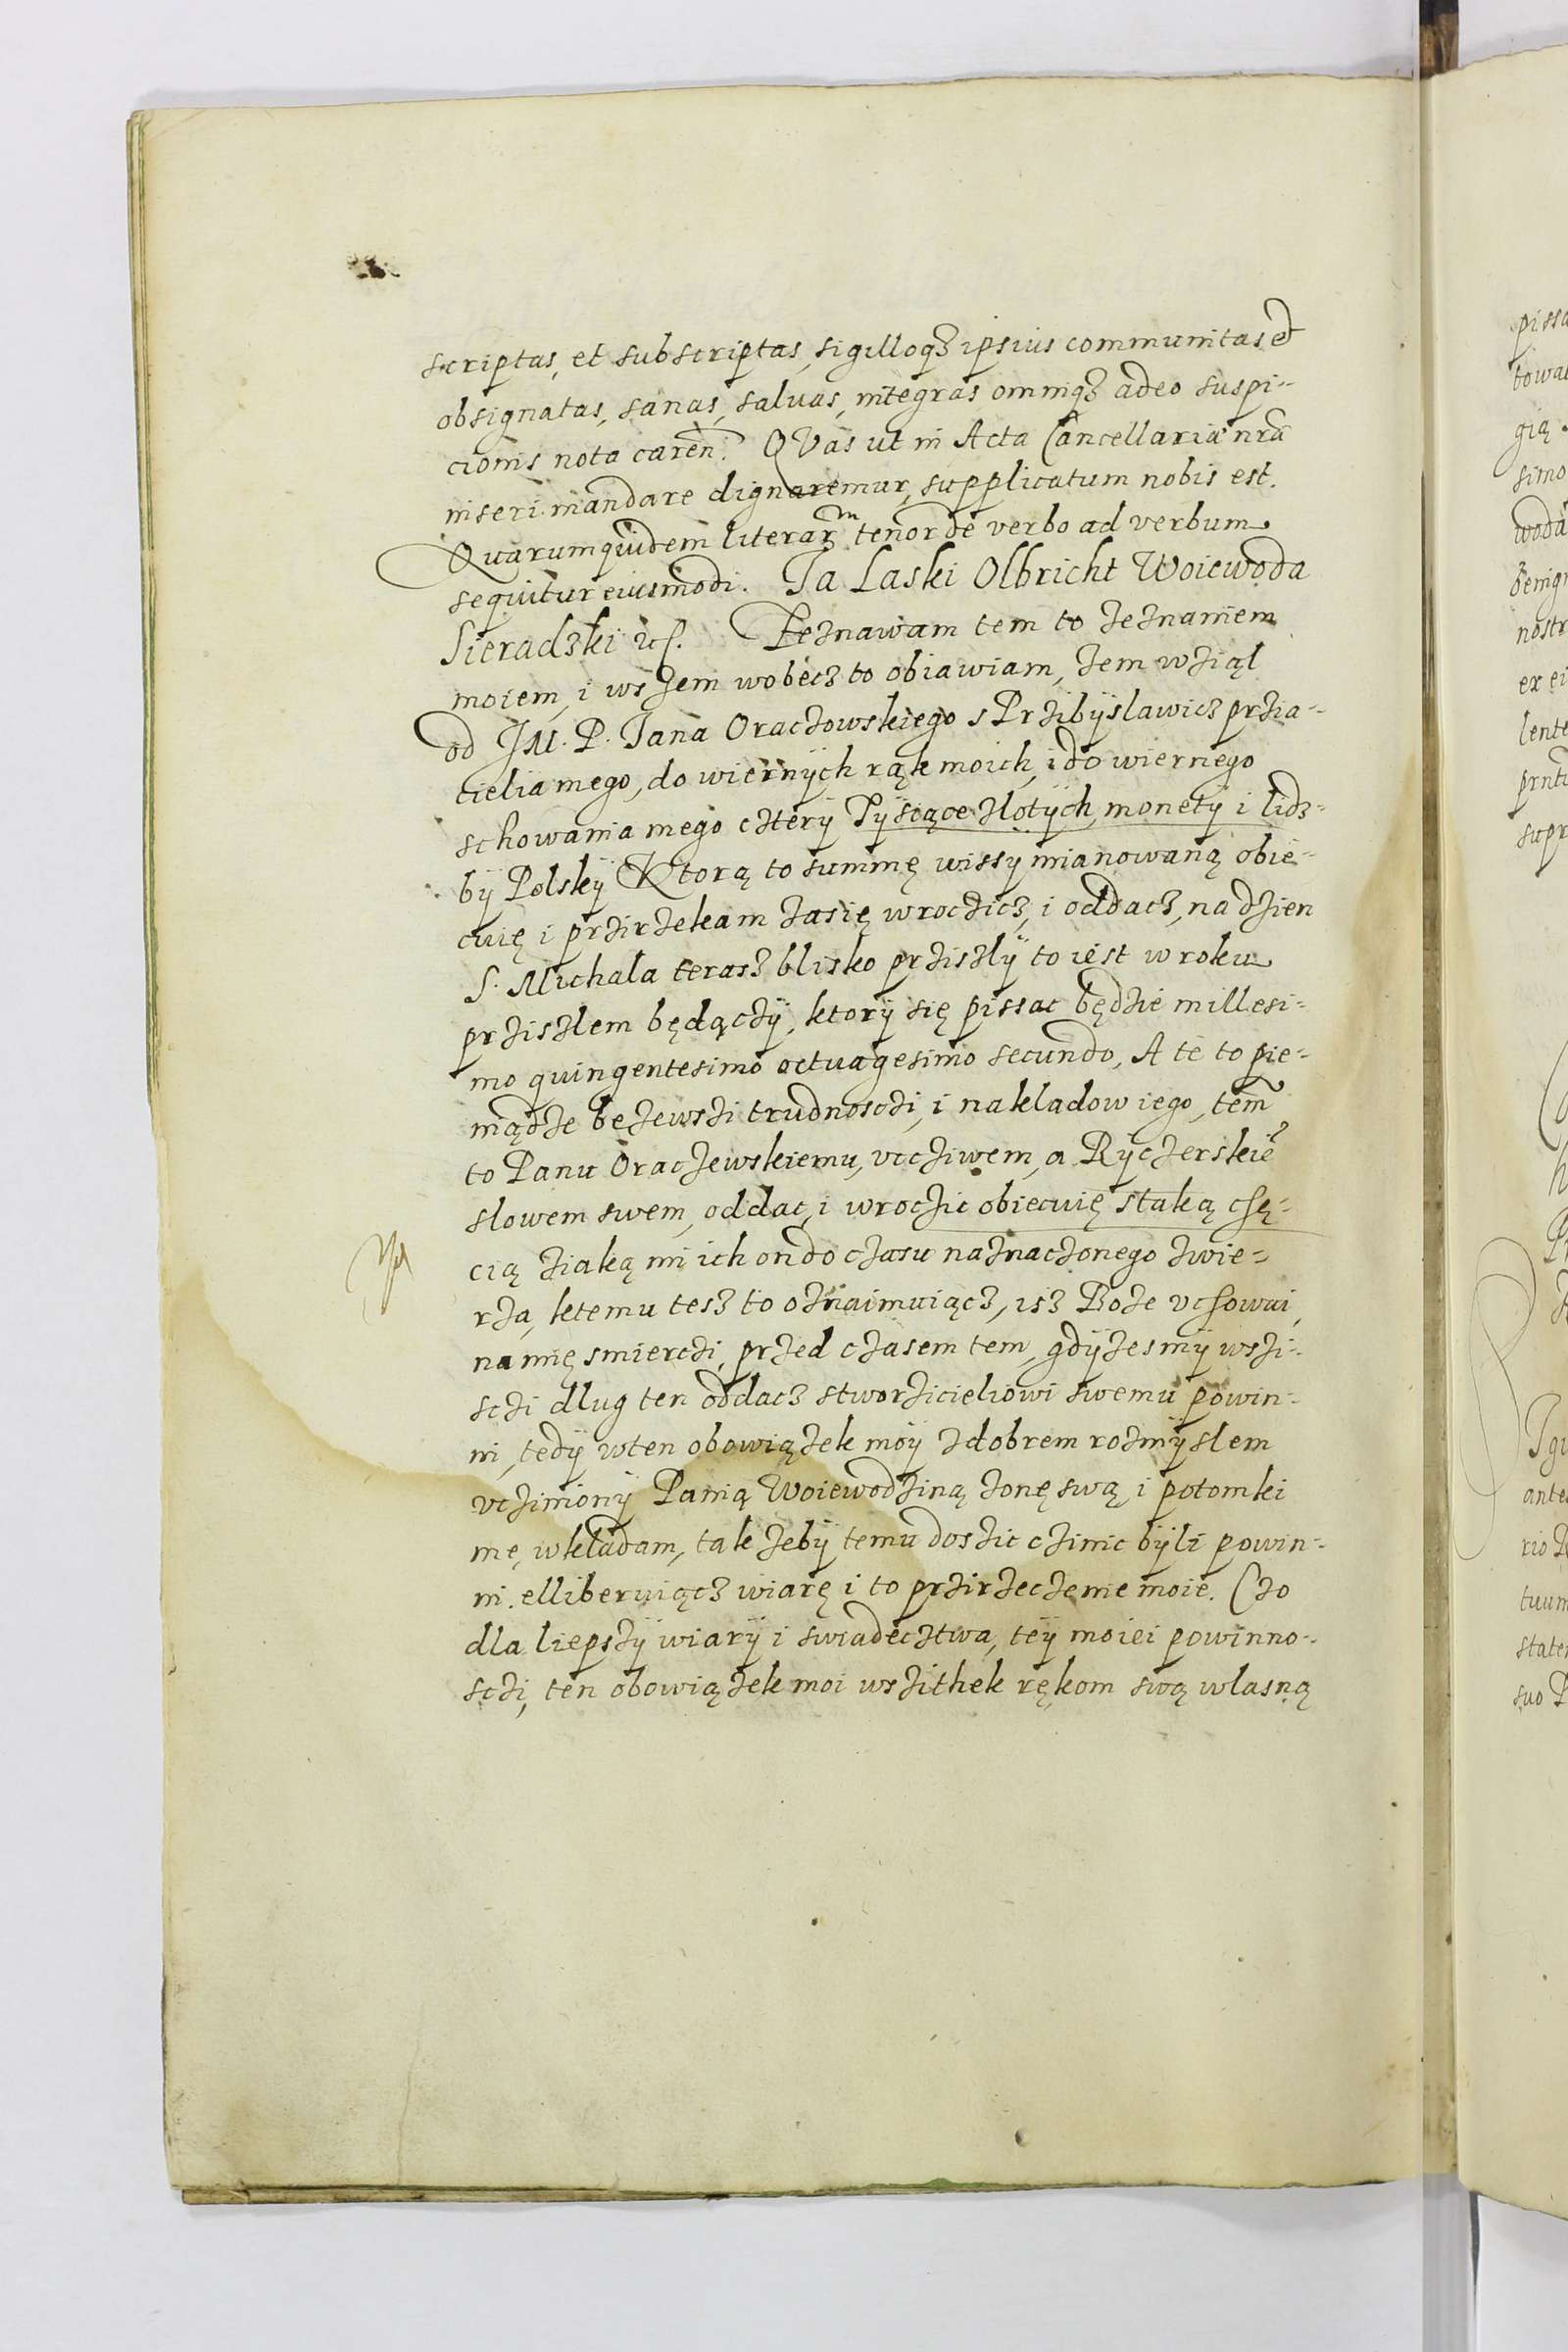 scriptas, et subscriptas, sigilloqꝫ ipsius communitas et
obsignatas, sanas, saluas, integras omniqꝫ adeo suspi-
cionis nota caren: QVas ut in Acta Cancellariæ nrã
inseri mandare dignaremur, supplicatum nobis est.
Quarum quidem literarũ tenor de verbo ad verbum
sequitur eiusmodi. Ja Laski Olbricht Woiewoda
Sieradzki etc. Zeznawam tem to zeznaniem
moiem, i wszem wobecz to obiawiam, zem wziął
od JM. P. Jana Oraczowskiego s Przibÿslawicz przia-
cielia mego, do wiernÿch rąk moich, i do wiernego
schowania mego czterÿ Tÿsiące zlotÿch, monetÿ i lidz-
bÿ Polskÿ Ktorą to summę wissy mianowaną obie-
cuię i przirzekam zasię wroczicz, i oddacz, na dzien
S. Michala terasz blisko prziszlÿ to iest w roku
prziszlem będączÿ, ktorÿ się pissac będzie millesi-
mo quingentesimo octuagesimo secundo, A te to pie-
niądze bezewszi trudnosczi, i nakladow iego, tem̃
to Panu Oraczewskiemu, vccziwem, a Rÿczerskiẽ
slowem swem, oddac, i wroczic obiecuię staką chę-
cią ziaką mi ich on do czasu naznaczonego zwie-
rza, ktemu tesz to oznaimuiącz, isz Boze vchowai,
na mię smierczi, przed czasem tem, gdÿzesmÿ wszi-
sczi dlug ten oddacz stworzicieliowi swemu powin-
ni, tedÿ wten obowiązek moÿ zdobrem rozmÿslem
vczinionÿ Panią Woiewodziną zonę swą, i potomki
me, wkladam, tak zebÿ temu doszic czinic bÿli powin-
ni. elliberuiącz wiarę i to przirzeczenie moie. Czo
dla liepszÿ wiarÿ i swiadecztwa, teÿ moiei powinno-
sczi, ten obowiązek moi wszithek rękom swą wlasną